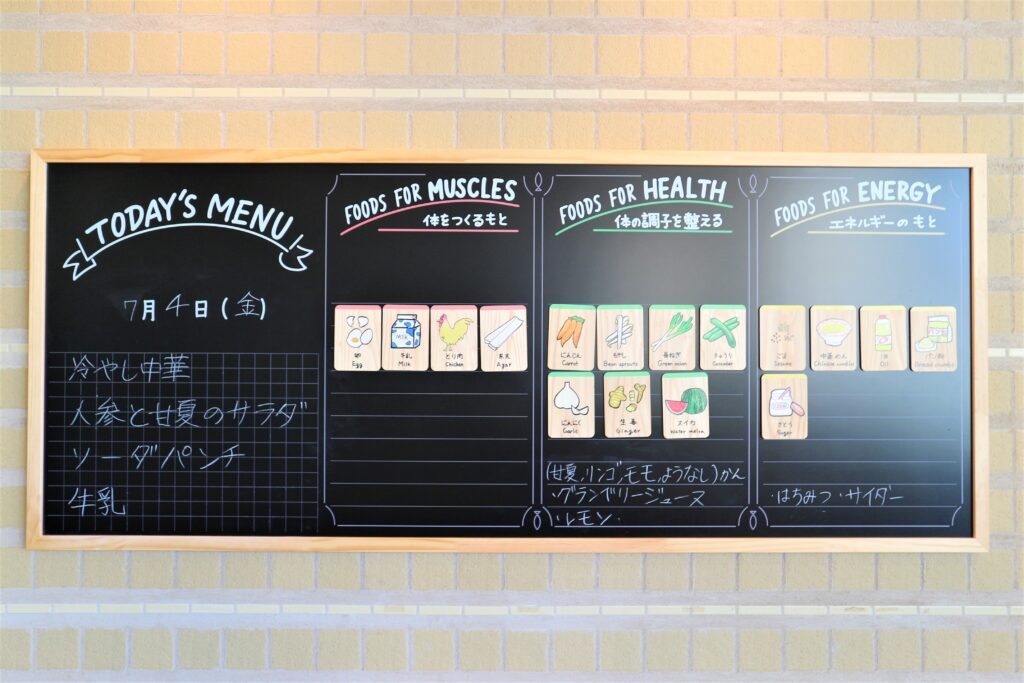 TODAY'S MENU
7月4日(金)
冷やし中華
人参と甘夏のサラダ
ソーダパンチ
牛乳
FOODS FOR MUSCLES
体をつくるもと
卵
Egg
牛乳
Milk
とり肉
Chicken
寒天
Agar
FOODS FOR HEALTH
体の調子を整える
にんじん
Carrot
もやし
Bean sprouts
長ねぎ
Green onion
きゅうり
Cucumber
にんにく
Garlic
生姜
Ginger
スイカ
Water melon
(甘夏,リンゴ,モモ,ようなし)かん
・グランベリージュース
・レモン・
FOODS FOR ENERGY
エネルギーのもと
ごま
Sesame
中華めん
Chinese noodles
油
Oil
パン粉
Bread crumbs
さとう
Sugar
・はちみつ・サイダー